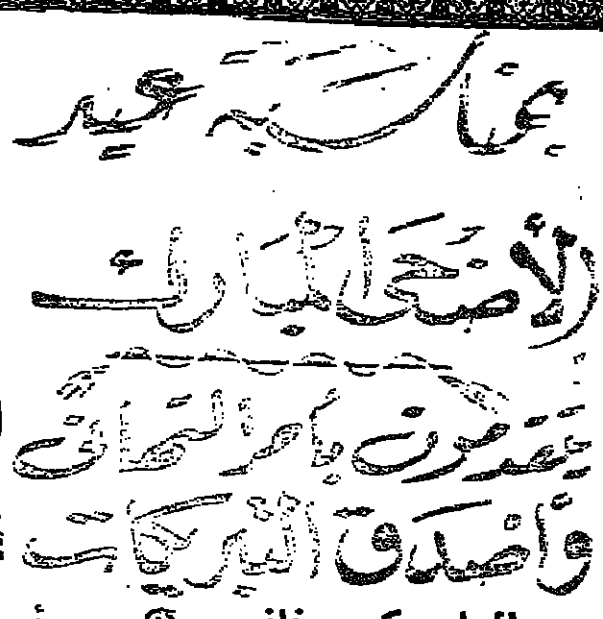 بمناسبة عيد
الأضحى المبارك
يتقدمون بأحر التهاني
وأصدق التبريكات